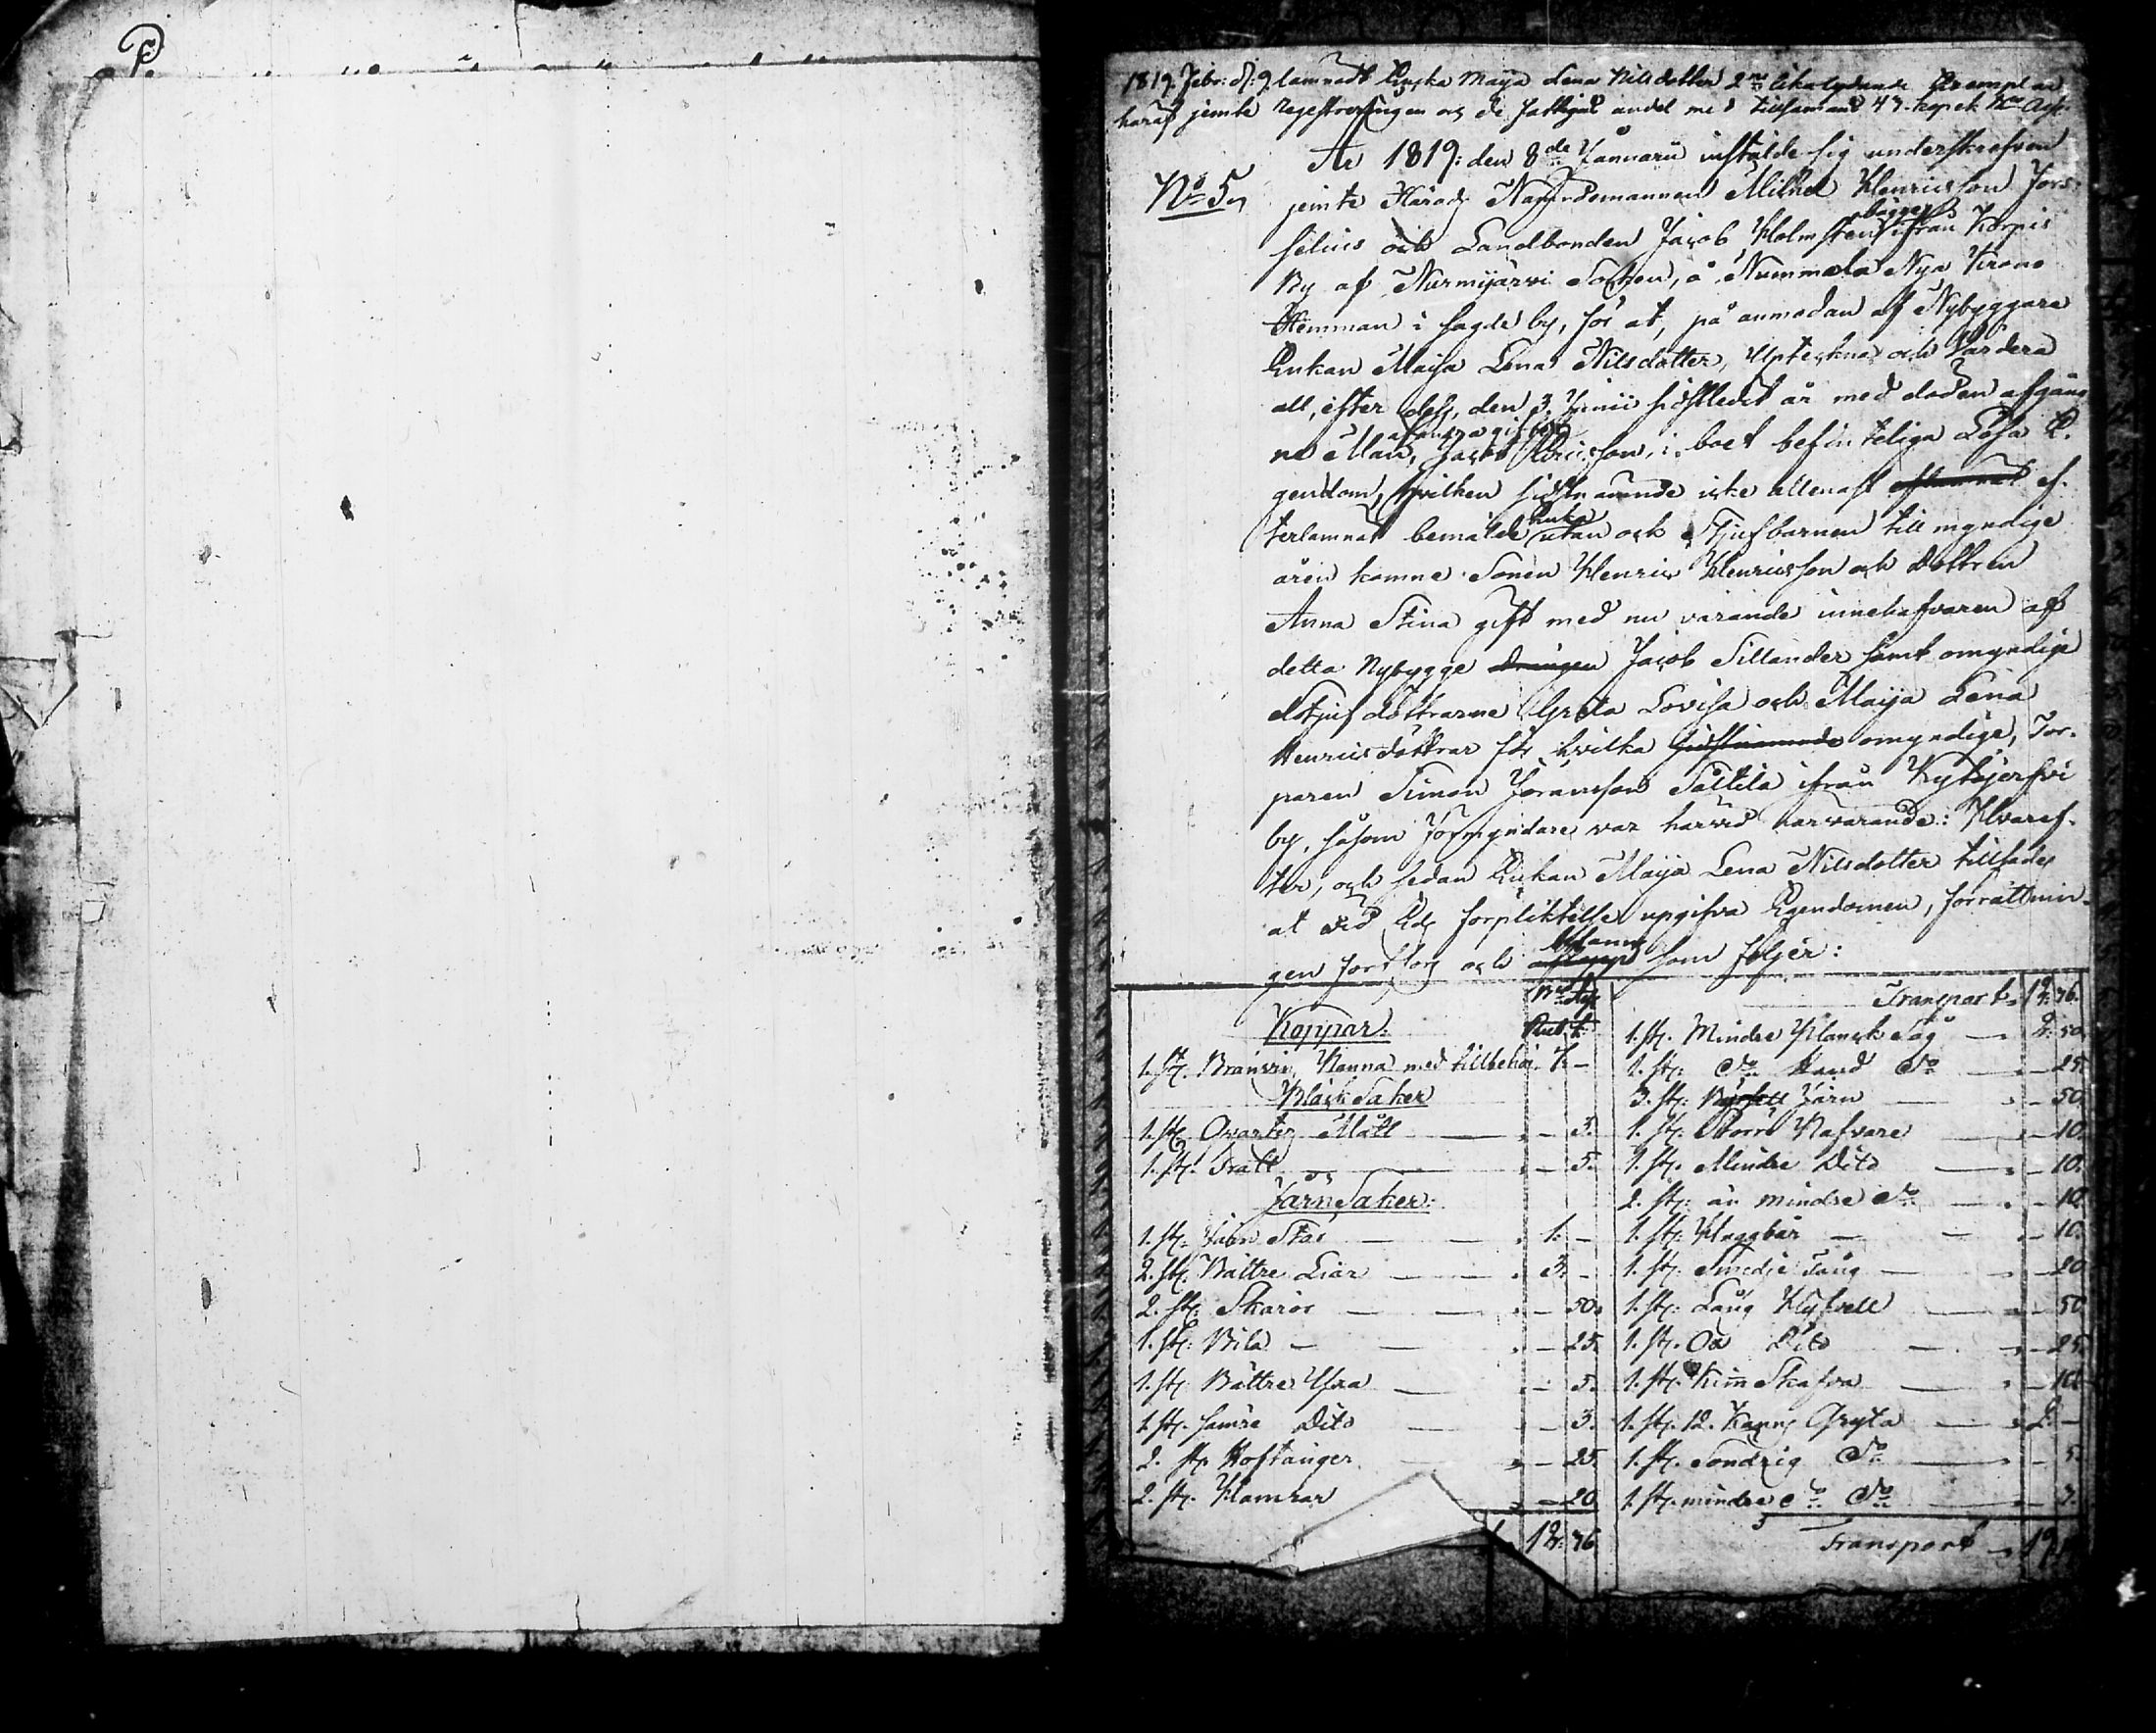 1819. Febr: d: 9. lämnadt Enka Maija Lena Nilsdotter 2ne lika lydande Exemplar
häraf jemte registreringen och de fattigas andel med tillsammans 47. kopek Bco Ass.
År 1819: den 8de Januarii instälde sig underskrefven
No 5.
jemte Härads Nämndemannen Mikael Henricsson Fors
selius och Landbonden Jacob Holmsten bägge ifrån Korpis
By af Nurmijärvi Socken, å Nummela Nya Krono
Hemman i sagde by, för at, på anmodan af Nybyggare
Enkan Maija Lena Nilsdotter, Upteckna och Värdera
all, efter dess, den 3. Junii sidstledit år med döden afgång
ne Man, Jacob Ericsson, i boet befinteliga Lösa E
gendom, hvilken sidstnämnde icke allenast ef
terlämnat bemälde Enka utan ock Stjufbarnen till myndige
åren komne Sonen Henric Henricsson och dottren
Anna Stina gift med nu varande innehafvaren af
detta Nybygge drängen Jacob Sillander samt omyndige
Stjuf döttrarne Greta Lovisa och Maija Lena
Henricsdöttrar för hvilka sidstnämnde omyndige, Tor
paren Simon Göransson Saltila ifrån Kytäjerfvi
by, såsom Förmyndare var härvid närvarande: Hvaref
ter, och sedan Enkan Maija Lena Nilsdotter tillsades
at vid Eds förpliktelse upgifva Egendomen, förrättnin
gen företogs och befanns som följer:
Bco Ass
Rub. k.
Koppar.
1. st. Bränvin Panna med tillbehör 7. –
Bläck Saker
1. st. Qvarters Mått – 3.
1. st. Tratt – 5.
Järn Saker.
1. st. Järn Stör 1. –
2. st. Bättre Liar 3. –
2. st. Skäror – 50.
1. st. Bila – 25.
1. st. Bättre Yxa – 5.
1. st. sämre Dito – 3.
2. st. Hoftänger – 25
2. st. Hamrar – 20
12. 36
Transport 12. 36.
1. st. Mindre Plank Såg 2. 50
1. st. Do Hand Do – 25.
3. st. Järn – 50.
1. st. Större Nafvare – 10.
1. st. Mindre Dito – 10.
2. st. än mindre Do – 10
1. st. Huggbär – 10.
1. st. Smedje Tång – 20
1. st. Lång Klyfvell – 50
1. st. Ox Dito – 25.
1. st. Kim Skafva – 10
1. st. 12. Kanns Gryta 2. –
1. st. Söndrig Do – 5.
1. st. mindre Do Do – 3.
Transport 19.